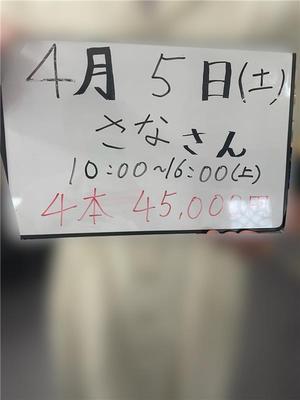 4月 5日(土)
さなさん
10:00~16:00(土)
4本 45,000円